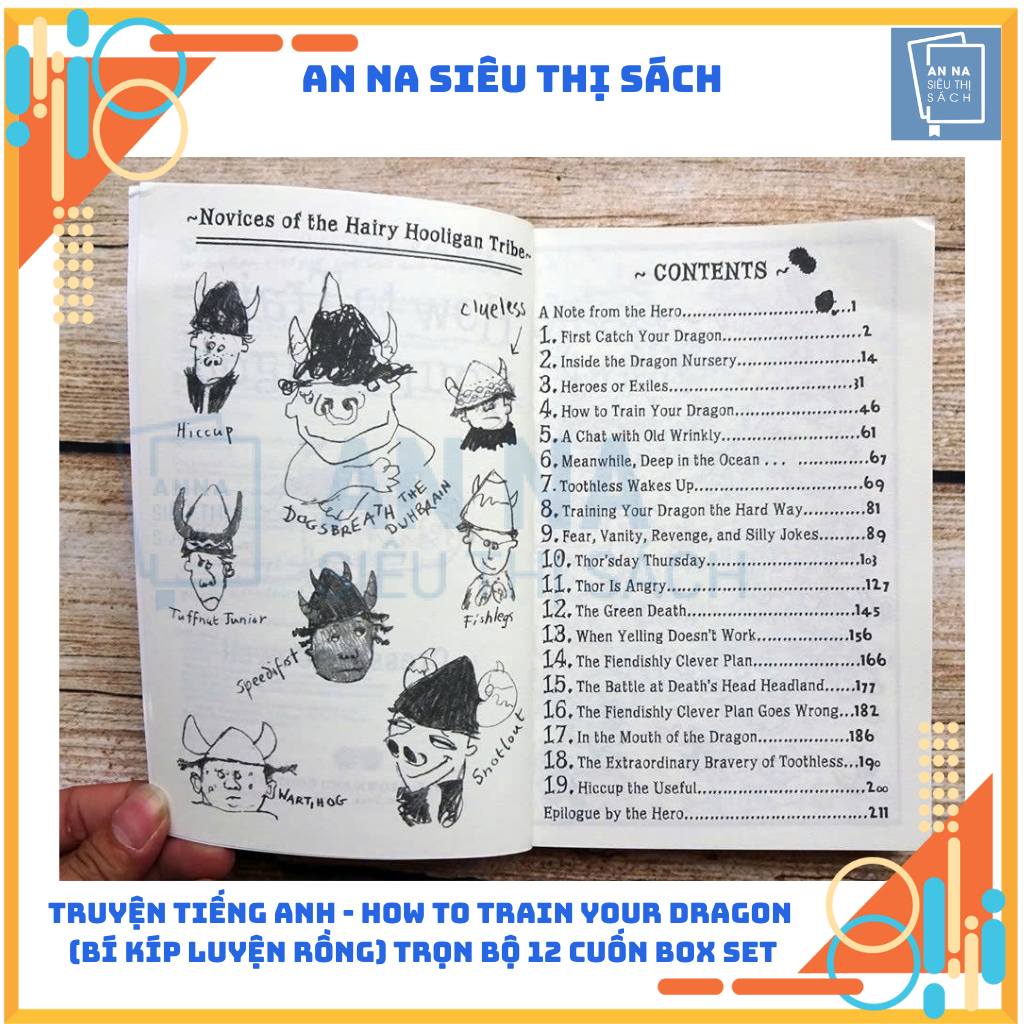 AN NA SIÊU THỊ SÁCH
AN NA
SIÊU THỊ
SÁCH
~Novices of the Hairy Hooligan Tribe~
Hiccup
clueless
DOGSBREATH THE DUHBRAIN
Tuffnut Junior
Speedifist
Fishlegs
WARTIHOG
Snotlout
~ CONTENTS ~
A Note from the Hero...1
1. First Catch Your Dragon...2
2. Inside the Dragon Nursery...14
3. Heroes or Exiles...31
4. How to Train Your Dragon...46
5. A Chat with Old Wrinkly...61
6. Meanwhile, Deep in the Ocean . . . ...67
7. Toothless Wakes Up...69
8. Training Your Dragon the Hard Way...81
9. Fear, Vanity, Revenge, and Silly Jokes...89
10. Thor'sday Thursday...103
11. Thor Is Angry...127
12. The Green Death...145
13. When Yelling Doesn't Work...156
14. The Fiendishly Clever Plan...166
15. The Battle at Death's Head Headland...177
16. The Fiendishly Clever Plan Goes Wrong...182
17. In the Mouth of the Dragon...186
18. The Extraordinary Bravery of Toothless...190
19. Hiccup the Useful...200
Epilogue by the Hero...211
AN NA
SIÊU THỊ SÁCH
ANNA
SIÊU THỊ
TRUYỆN TIẾNG ANH - HOW TO TRAIN YOUR DRAGON
(BÍ KÍP LUYỆN RỒNG) TRỌN BỘ 12 CUỐN BOX SET